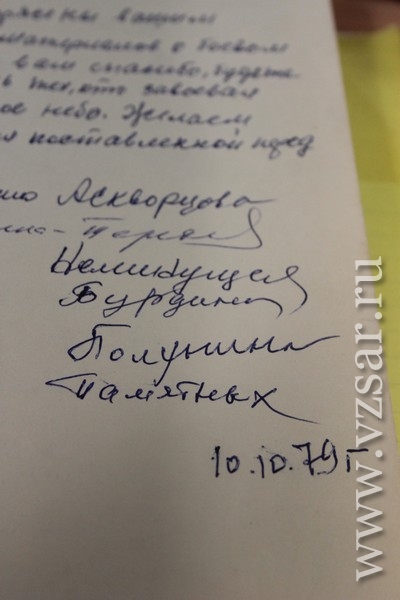 ены вашим
материалов о боевом
вам спасибо, будьте
тех, кто завоевал
ое небо. Желаем
поставленной перед
А Скворцова
Немикущея
Бурдина
Полунина
Памятных
10.10.79 г
www.vzsar.ru